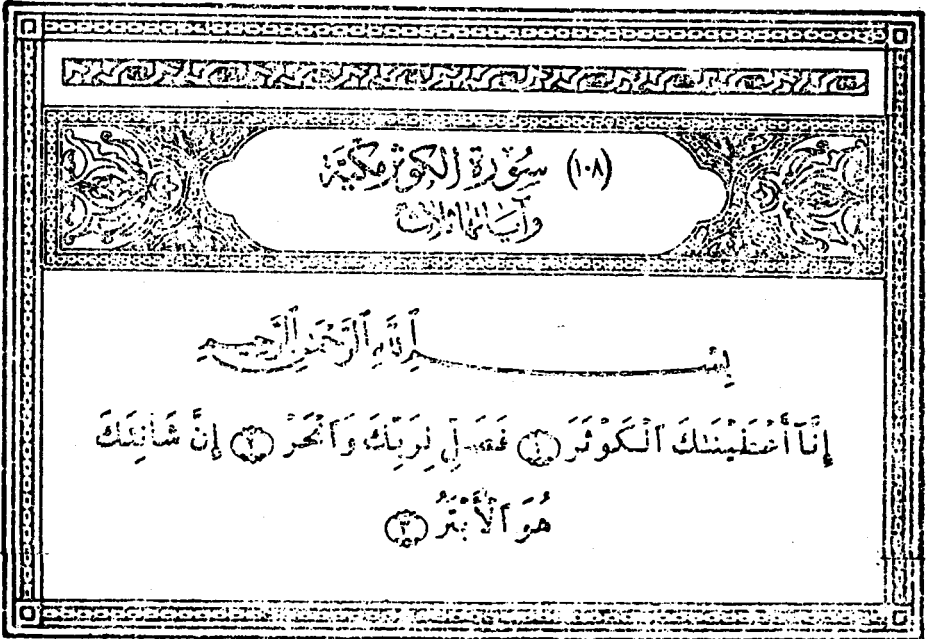 (١٠٨) سُورَة الكوثر مكيّة
وآياتها ثلاث
بِسْمِ ٱللَّهِ ٱلرَّحْمَٰنِ ٱلرَّحِيمِ
إِنَّآ أَعْطَيْنَٰكَ ٱلْكَوْثَرَ ١ فَصَلِّ لِرَبِّكَ وَٱنْحَرْ ٢ إِنَّ شَانِئَكَ
هُوَ ٱلْأَبْتَرُ ٣